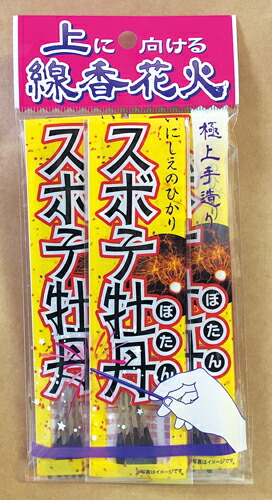 上に向ける
線香花火
極上手造り
いにしえのひかり
スボテ牡丹
ぼたん
スボテ牡丹
ぼたん
写真はイメージです。
写真はイメージです。